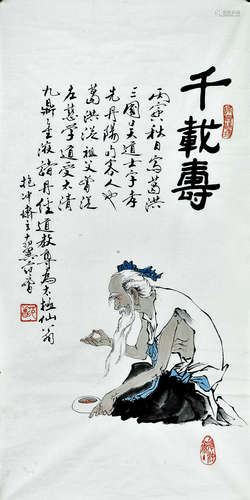 千載壽
丙寅秋日寫葛洪
三國吳道士字孝
先丹陽句容人
葛洪從祖父曾從
左慈學道受太清
九鼎金液諸丹經道教尊為太極仙翁
抱沖齋主十翼范曾